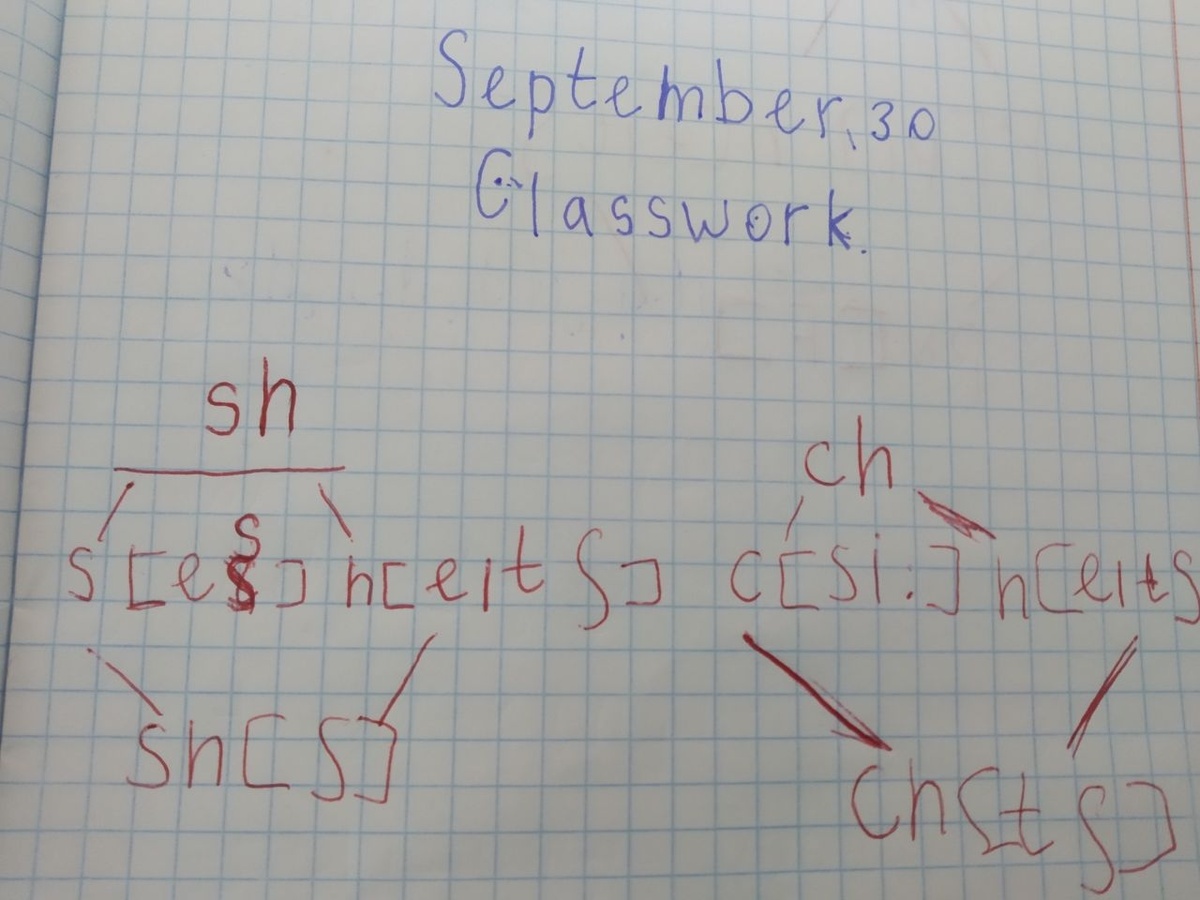 September, 30
Classwork.
sh
ch
s [es] h[eitʃ] c[si:] h[eitʃ
sh[ʃ]
ch[tʃ]